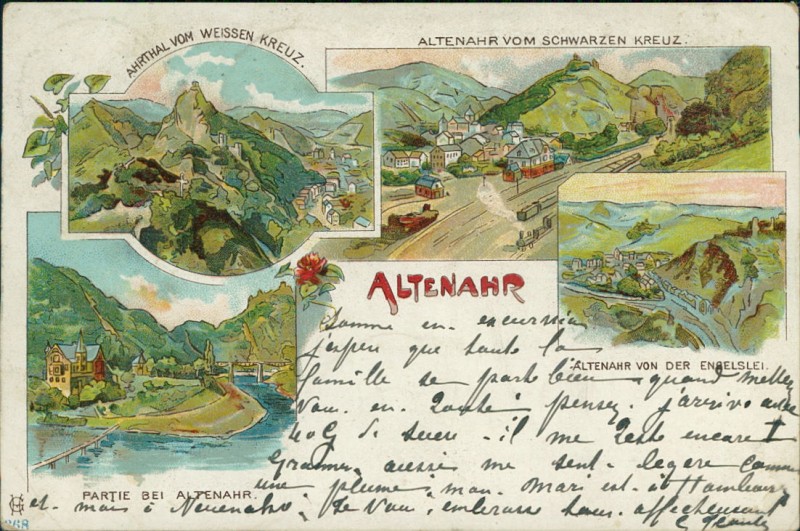 AHRTHAL VOM WEISSEN KREUZ.
ALTENAHR VOM SCHWARZEN KREUZ.
ALTENAHR
ALTENAHR VON DER ENGELSLEI.
PARTIE BEI ALTENAHR.
268
Somme en excursion
j'espère que toute la
famille se porte bien quand mettez
Vous en route pensez j'arrive avec
40G de sucre - il me reste encore 1
Gramme aussi me sent legere comme
une plume, mon mari est à Hambourg
et moi à Neuenahr. Je vous embrasse tous affectueusement